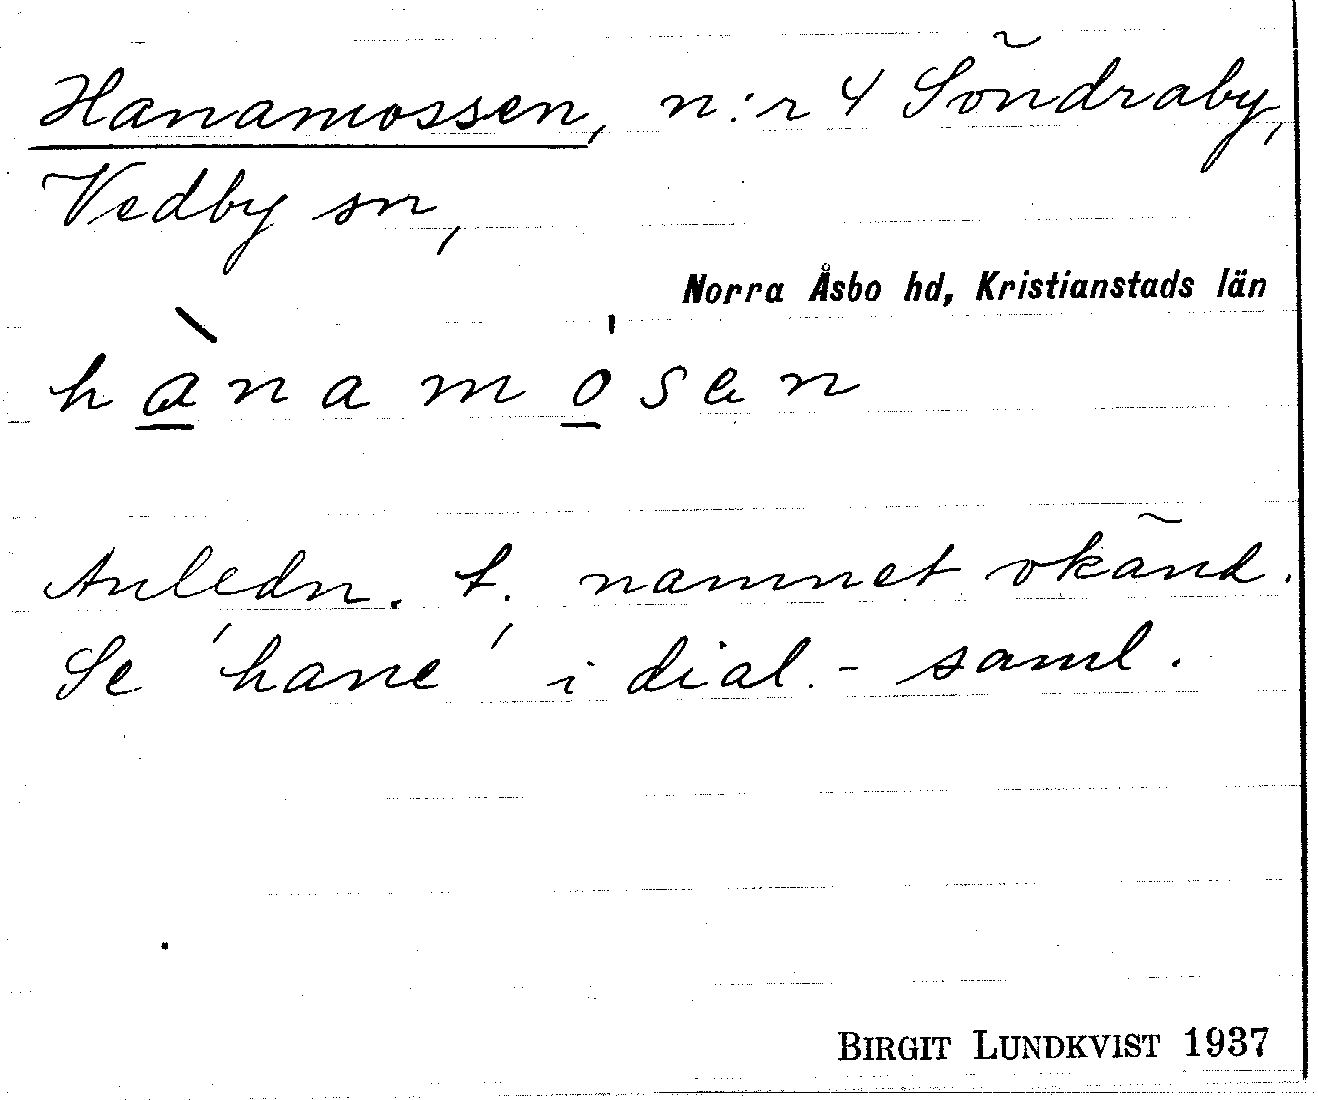 Hanamossen, n:r 4 Söndraby,
Vedby sn,
Norra Åsbo hd, Kristianstads län
hànamo̍sen
Anledn. t. namnet okänd.
Se 'hane' i dial.-saml.
BIRGIT LUNDKVIST 1937